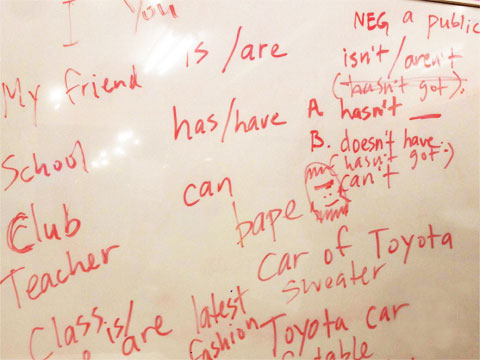 I You
NEG a public
My friend
is / are
isn't / aren't
(hasn't got).
School
has/have
A. hasn't __
B. doesn't have
(hasn't got.)
Club
can
can't
bape
Teacher
Car of Toyota
sweater
Class is/
are latest
fashion
Toyota car